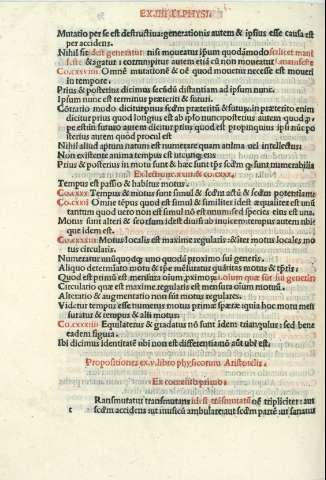 EX.IIII.LI.PHYSI.
Mutatio per se est destructiua: generationis autem & ipsius esse causa est
per accidens.
Nihil fit idest generatur nisi moueatur ipsum quodāmodo
.fe. & agatur: & corrumpitur autem etiā cū non moueatur .manifeste
Co.cxxviii. Omnē mutationē & oē quod mouetur necesse est moueri
in tempore.
Prius & posterius dicimus secūdū distantiam ad ipsum nunc.
Ipsum nunc est terminus præteriti & futuri.
Cōtrario modo dicitur prius secm præteritū & futurū. in præterito enim
dicitur prius quod longius est ab ipso nunc posterius autem quod p-
pe est: in futuro autem dicitur prius quod est propinquius ipsi nūc po-
sterius autem quod procul est
Nihil aliud aptum natum est numerare quam anima vel intellectus.
Non existente anima tempus est utcunq; ens
Prius & posterius in motu sunt & hæc sunt tps secm q sunt numerabilia
Tempus est passio & habitus motus.
Co.cxxx Tempus & motus sunt simul & secm actū & secm potentiam.
Co.cxxxi Omne tēpus quod est simul & similiter idest æqualiter est unū
tantum quod uero non est simul nō est unum sed species eius est una.
Motus sunt alteri & seorsum id est diuersi: tempus autem unum est ubi-
que idem est.
Co.cxxxiii Motus localis est maxime regularis: & iter motus locales mo
tus circularis.
Numeratur unūquodq; uno quodā proximo sui generis.
Aliquo determinato motu & tpe mēsuratur quātitas motus & tpis:
Quod est primū est mensura oium proximoq; .oium quæ sūt sui generis
Circulatio quæ est maxime regularis est mensura oium motuū.
Alteratio & augmentatio non sūt motus regulares.
Videtur tempus esse numerus motus primæ spæræ: quia hoc motu men
suratur & tempus & alii motus.
Co.cxxxiiii Equilaterus & gradatus nō sunt idem triangulus: sed bene
eadem figura.
Ibi dicimus identitatē ubi non est differentia nō aut ubi est.
Propositiones ex.v.libro physicorum Aristotelis.
Ex commēti primo.
Transmutatur transmutans idest trāsmutatū oē tripliciter: aut
secm accidens aut musicū ambulare: aut secm partē aut sanatur
t